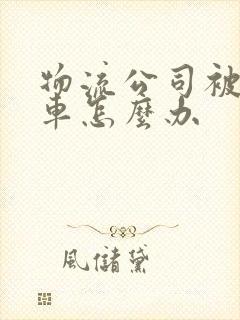 物流公司被
車怎麼办
風儲黛